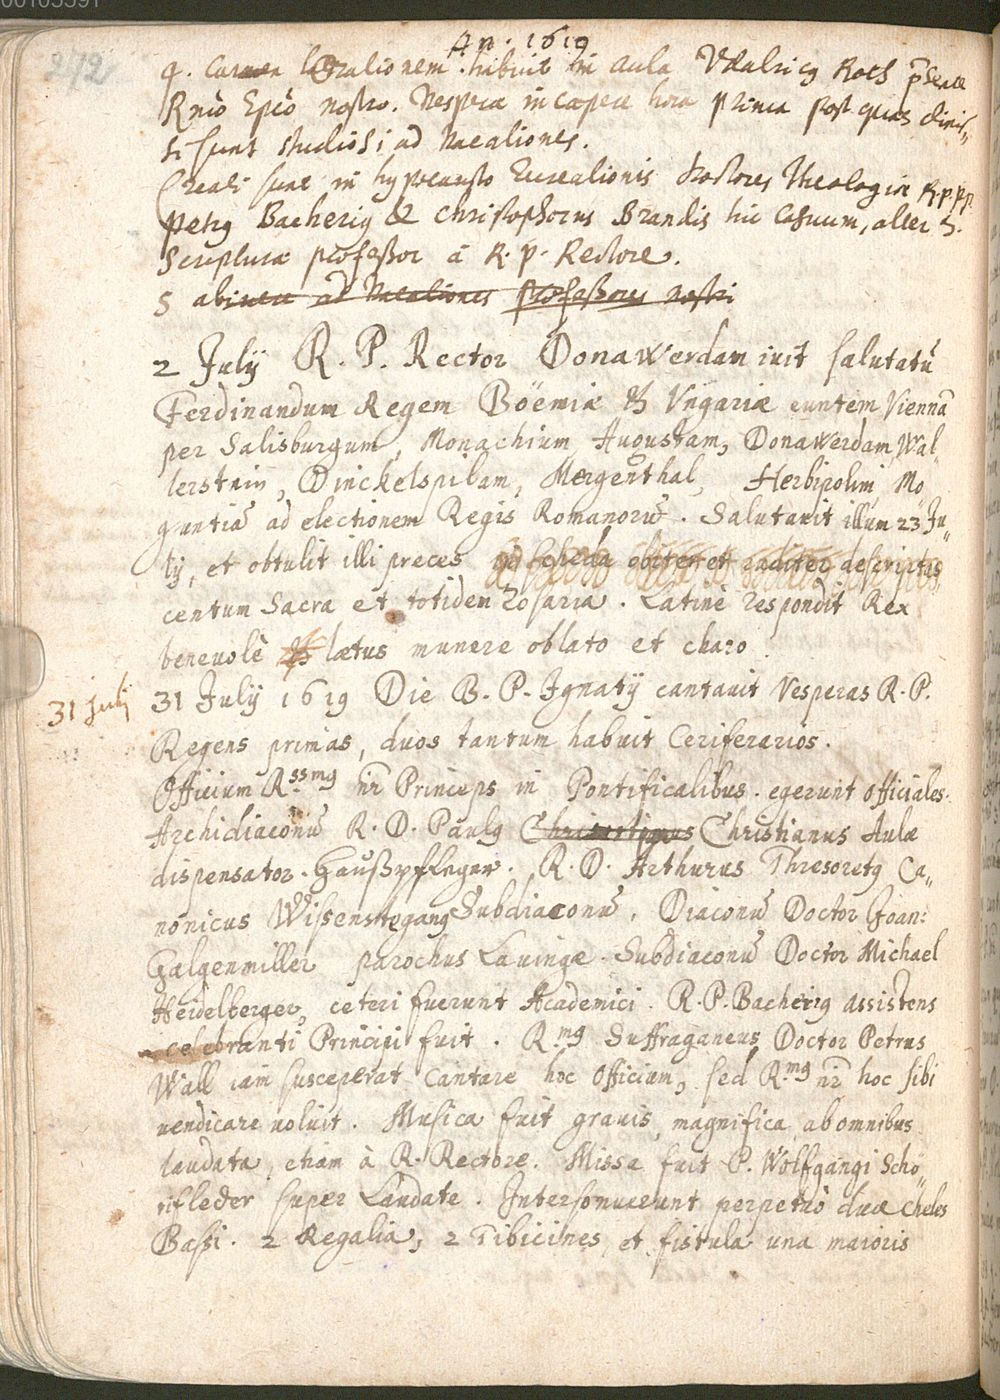 00103391
272
An. 1619
4. Carmen et Orationem habuit in aula Vdalricg Roch
Rmo Epco nostro. Vesperae incaeptae hora prima post quas dimis„
si sunt studiosi ad vacationes.
Creati sunt in hypocausto Recreationis Doctores Theologiae RR.PP.
Petrg Bacherig & Christophorus Brandis hic Casuum, alter S.
Scripturae professor à R. P. Rectore.
5 abiuere ad vacationes professores nostri
2 July R. P. Rector Donawerdam iuit salutatū
Ferdinandum Regem Böemiæ & Vngariæ euntem Viennā
per Salisburgum, Monachium Augustam, Donawerdam, Wal„
lerstain, Dinckelspilam, Mergenthal, Herbipolim, Mo„
guntiā ad electionem Regis Romanorū. Salutauit illum 23 Ju„
ly, et obtulit illi preces in scheda obiter et descriptas
centum Sacra et totidem Rosaria. Latinè respondit Rex
beneuolè & lætus munere oblato et charo.
31 July
31 July 1619 Die B. P. Ignatij cantauit Vesperas R. P.
Regens primas, duos tantum habuit Ceriferarios.
Officium R.ssmg nr Princeps in Pontificalibus. egerunt officiales.
Archidiaconū R. D. Paulg Christianus Aulæ
dispensator. Haußpfleger. R. D. Arthurus Thresoretg Ca„
nonicus Wissenstegang Subdiaconū. Diaconū Doctor Joan:
Galgenmiller parochus Lauingæ. Subdiaconū Doctor Michael
Heidelberger, ceteri fuerunt Academici. R. P. Bacherig assistens
celebranti Principi fuit. R.mg Suffraganeus Doctor Petrus
Wall iam susceperat cantare hoc officium, sed R.mg nr hoc sibi
uendicare uoluit. Musica fuit grauis, magnifica, ab omnibus
laudata, etiam à R. Rectore. Missa fuit P. Wolfgangi Schö„
nsleder super Laudate. Intersonuerunt perpetuò duæ Cheles
Bassi. 2 Regalia, 2 Tibicines et fistula una maioris